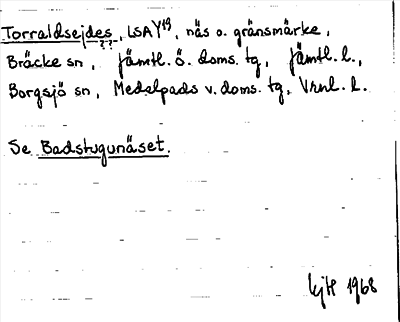 Torraldsejdes, LSAY¹⁹, näs o. gränsmärke,
??
Bräcke sn, Jämtl. ö. doms. tg, Jämtl. l.,
Borgsjö sn, Medelpads v. doms. tg, Vrnl. l.
Se Badstugunäset.
1968